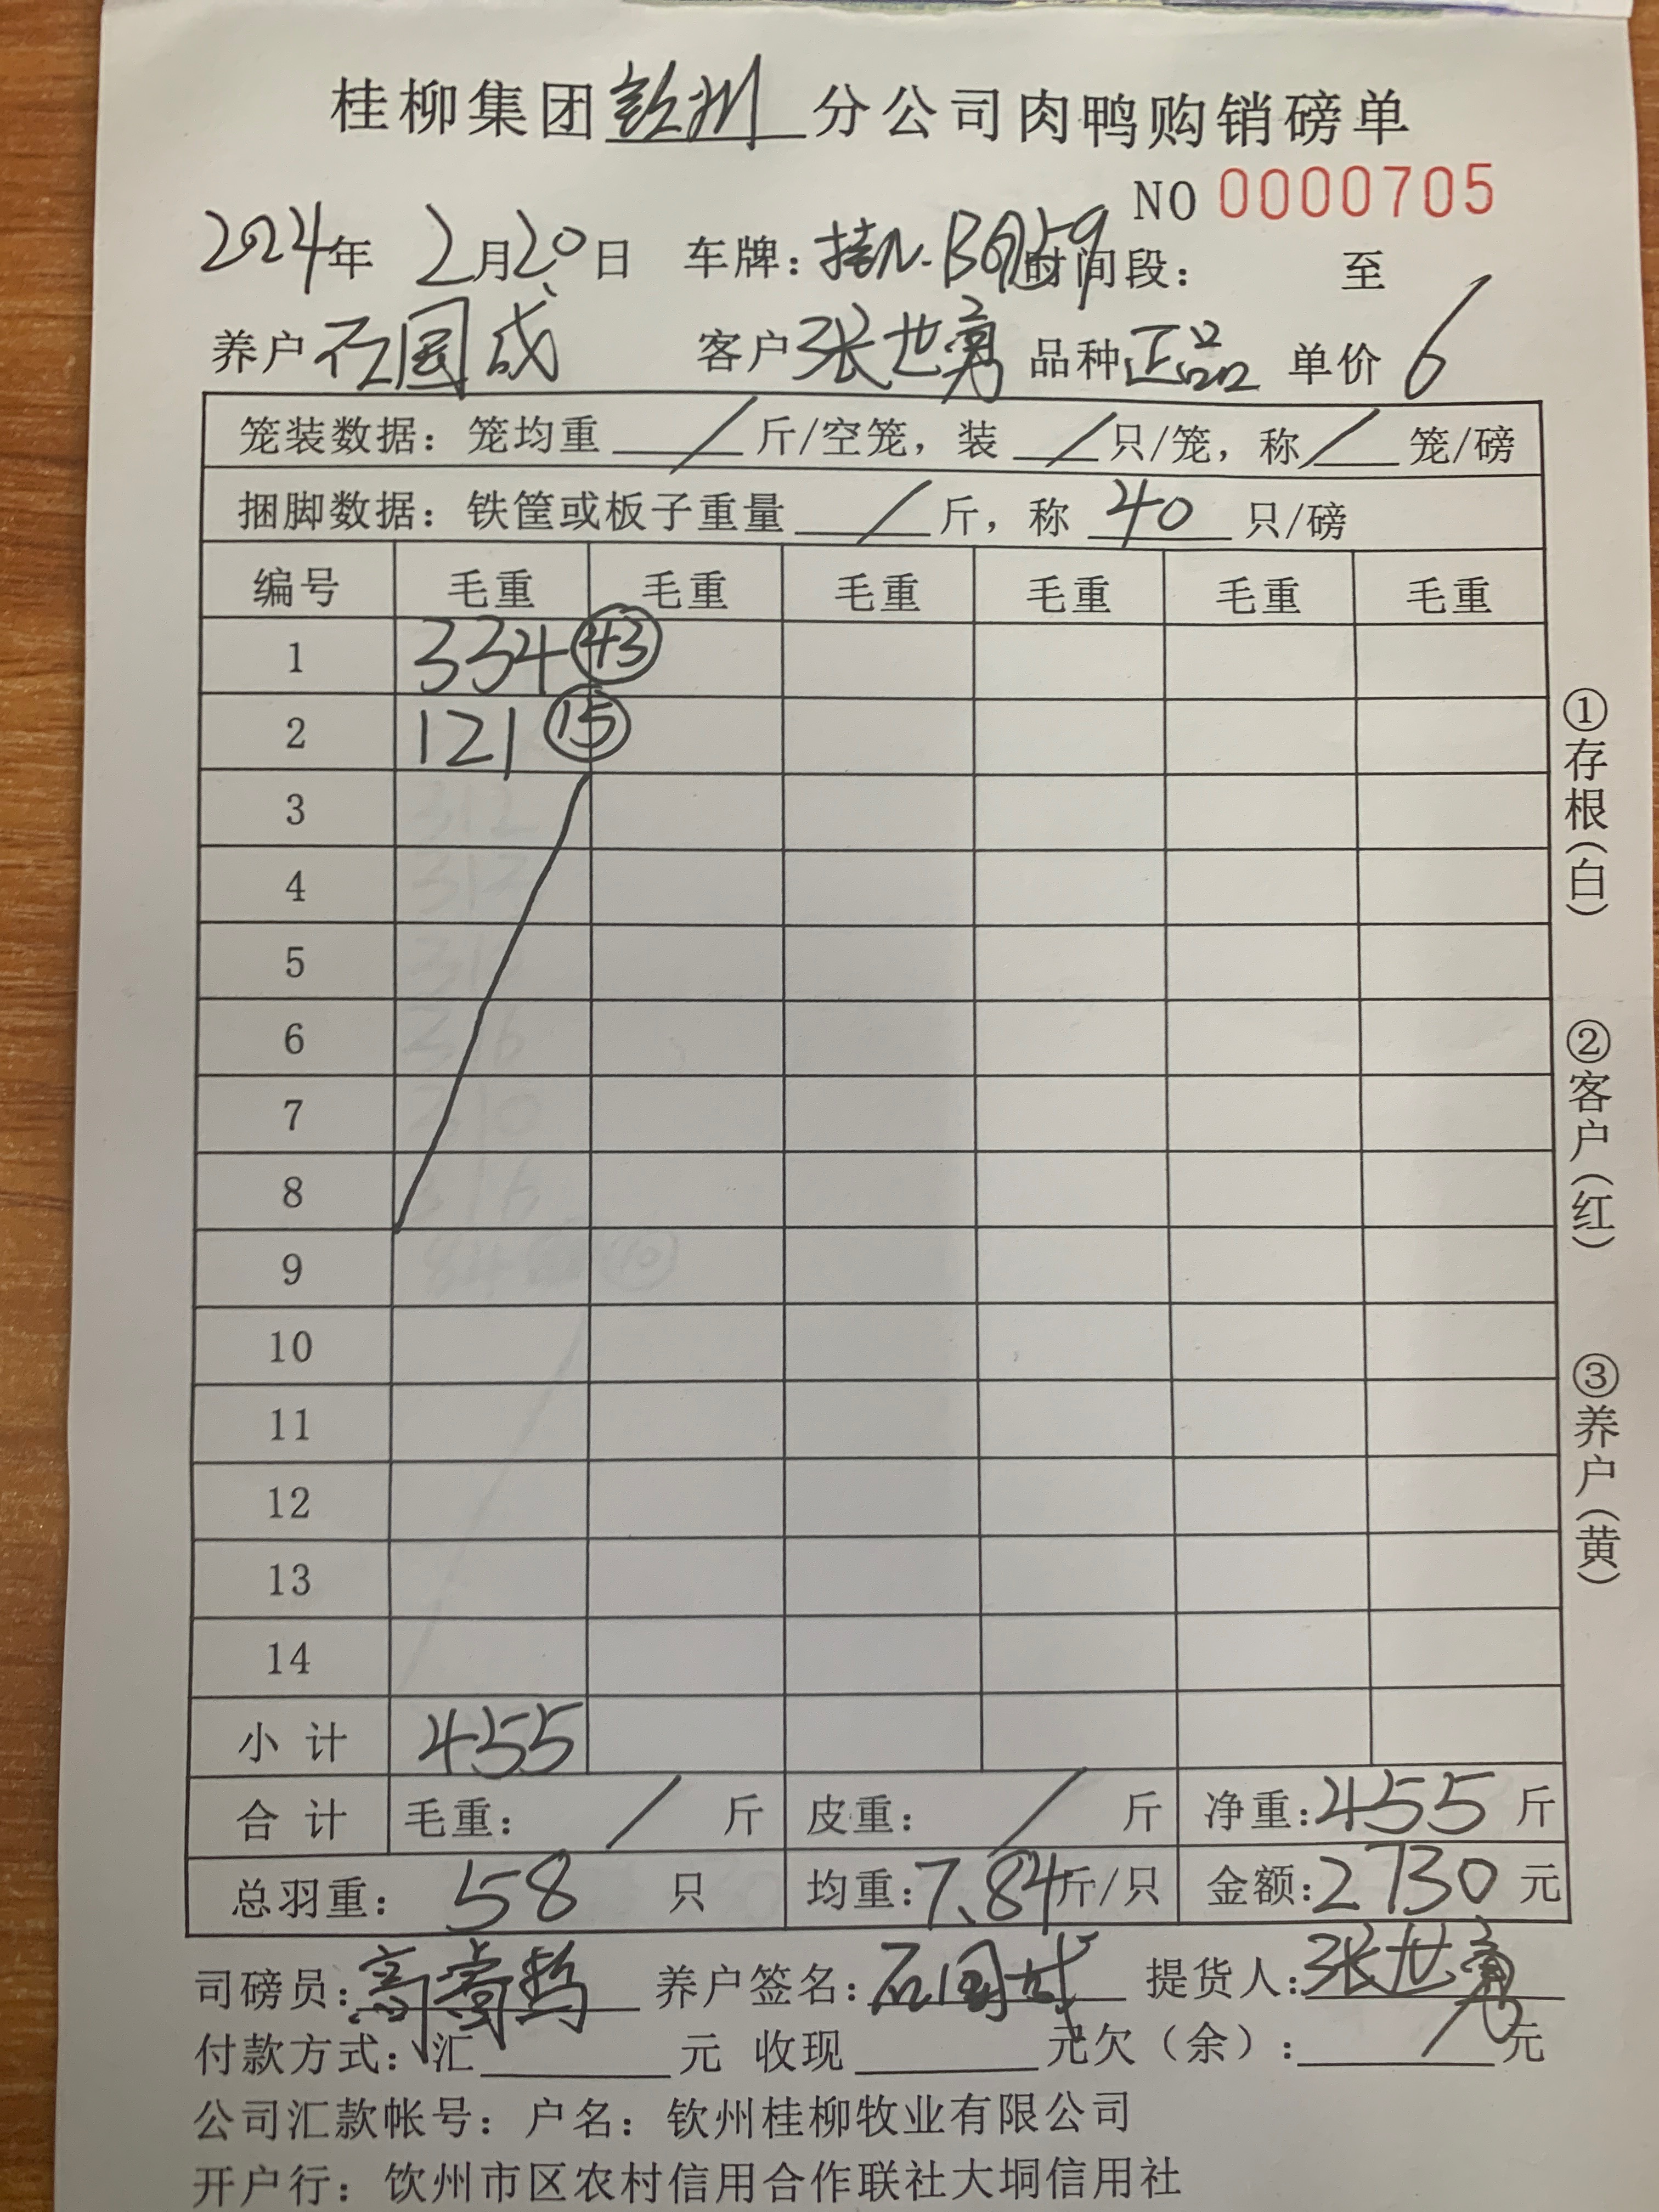 桂柳集团钦州分公司肉鸭购销磅单
NO 0000705
2024年 2月20日 车牌: 时间段: 至
养户石国成 客户张世勇 品种正品 单价6
笼装数据: 笼均重 / 斤/空笼, 装 / 只/笼, 称 / 笼/磅
捆脚数据: 铁筐或板子重量 / 斤, 称 40 只/磅
编号 毛重 毛重 毛重 毛重 毛重 毛重
1 334 43
2 121 15
3
4
5
6
7
8
9
10
11
12
13
14
小计 455
合计 毛重: / 斤 皮重: / 斤 净重:455斤
总羽重: 58 只 均重:7.84斤/只 金额:2730元
司磅员: 养户签名:石国成 提货人:张世勇
付款方式: 汇 元 收现 元欠(余): / 元
公司汇款帐号: 户名: 钦州桂柳牧业有限公司
开户行: 钦州市区农村信用合作联社大垌信用社
①存根(白) ②客户(红) ③养户(黄)